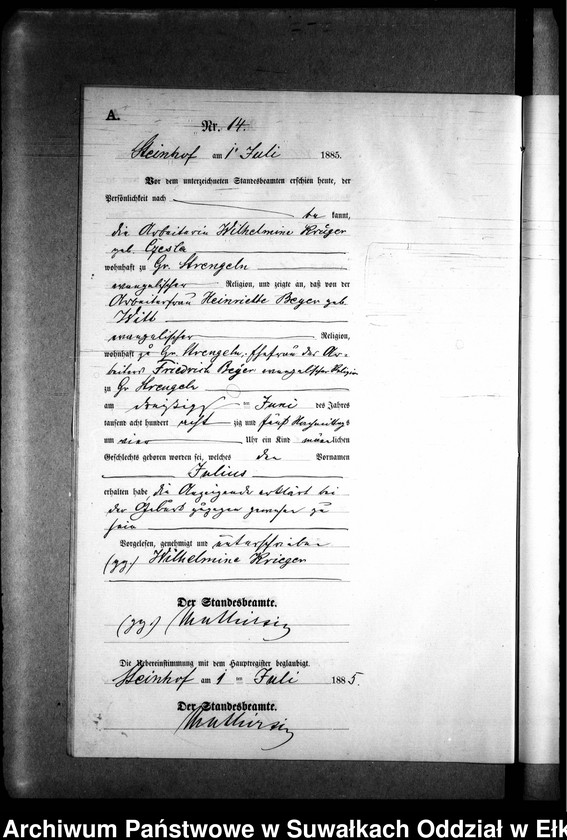 A.
Nr. 14.
Steinhof am 1 Juli 1885.
Vor dem unterzeichneten Standesbeamten erschien heute, der
Persönlichkeit nach
be kannt,
die Arbeiterin Wilhelmine Krüger
geb. Czesla
wohnhaft zu Gr. Strengeln
evangelischer Religion, und zeigte an, daß von der
Arbeiterfrau Henriette Beyer geb.
Witt
evangelischer Religion,
wohnhaft zu Gr. Strengeln, Ehefrau des Ar-
beiters Friedrich Beyer evangelischer Religion
zu Gr Strengeln
am dreißigsten Juni des Jahres
tausend acht hundert acht zig und fünf Nachmittags
um vier Uhr ein Kind männlichen
Geschlechts geboren worden sei, welches den Vornamen
Julius
erhalten habe, die Anzeigende erklärt bei
der Geburt zugegen gewesen zu
sein
Vorgelesen, genehmigt und unterschrieben
(gz.) Wilhelmine Krieger
Der Standesbeamte.
(gz.)
Die Uebereinstimmung mit dem Hauptregister beglaubigt.
Steinhof am 1 Juli 1885.
Der Standesbeamte.
Archiwum Państwowe w Suwałkach Oddział w Ełk